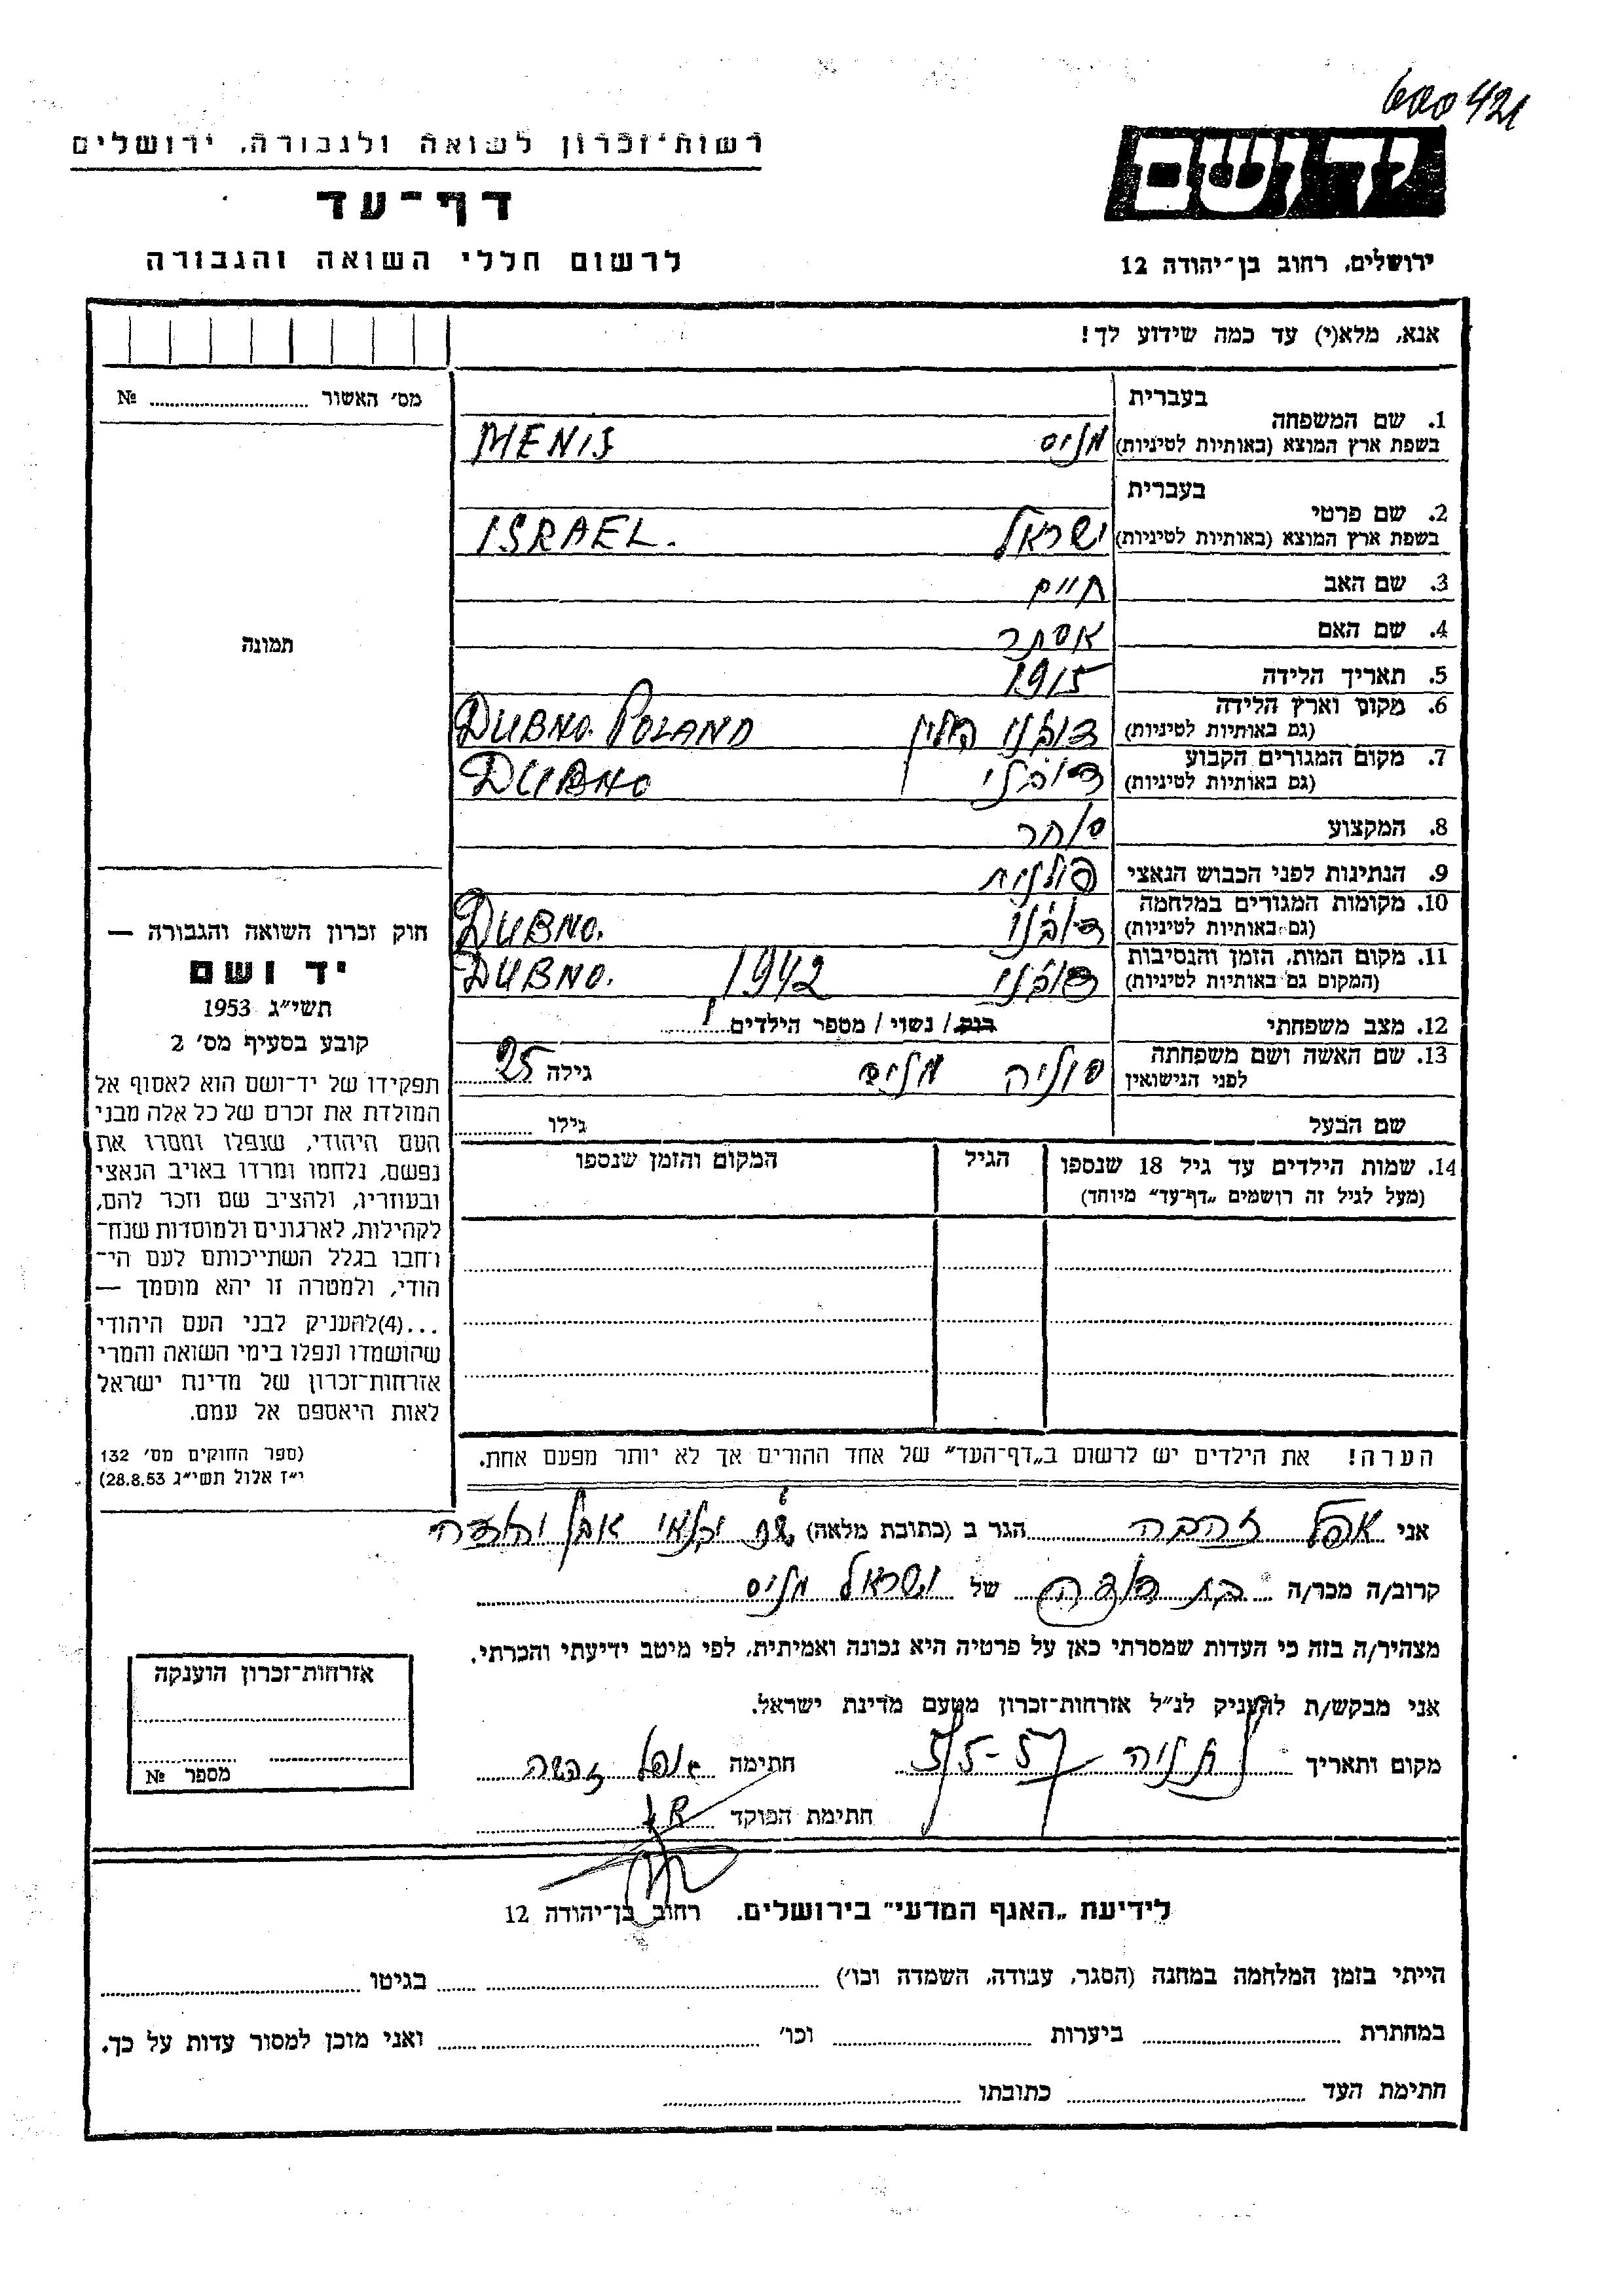 600421
רשות־זכרון לשואה ולגבורה, ירושלים
יד ושם
דף־עד
לרשום חללי השואה והגבורה
ירושלים, רחוב בן־יהודה 12
אנא, מלא(י) עד כמה שידוע לך!
מס׳ האשור .......... №
בעברית
1. שם המשפחה
בשפת ארץ המוצא (באותיות לטיניות) מניס MENIS
בעברית
2. שם פרטי
בשפת ארץ המוצא (באותיות לטיניות) ישראל ISRAEL.
3. שם האב חיים
4. שם האם אסתר
5. תאריך הלידה 1915
6. מקום וארץ הלידה
(גם באותיות לטיניות) דובנו פולין DUBNO. POLAND
7. מקום המגורים הקבוע
(גם באותיות לטיניות) דובנו DUBNO
8. המקצוע סוחר
9. הנתינות לפני הכבוש הנאצי פולנית
10. מקומות המגורים במלחמה
(גם באותיות לטיניות) דובנו DUBNO.
11. מקום המות, הזמן והנסיבות
(המקום גם באותיות לטיניות) דובנו 1942 DUBNO.
12. מצב משפחתי רווק / נשוי / מספר הילדים 1
13. שם האשה ושם משפחתה
לפני הנישואין סוניה מניס גילה 25
שם הבעל גילו ..........
14. שמות הילדים עד גיל 18 שנספו
(מעל לגיל זה רושמים „דף־עד״ מיוחד)
הגיל
המקום והזמן שנספו
הערה! את הילדים יש לרשום ב„דף־העד״ של אחד ההורים אך לא יותר מפעם אחת.
תמונה
חוק זכרון השואה והגבורה —
יד ושם
תשי״ג 1953
קובע בסעיף מס׳ 2
תפקידו של יד־ושם הוא לאסוף אל
המולדת את זכרם של כל אלה מבני
העם היהודי, שנפלו ומסרו את
נפשם, נלחמו ומרדו באויב הנאצי
ובעוזריו, ולהציב שם וזכר להם,
לקהילות, לארגונים ולמוסדות שנח־
רחבו בגלל השתייכותם לעם הי־
הודי, ולמטרה זו יהא מוסמך —
...(4)להעניק לבני העם היהודי
שהושמדו ונפלו בימי השואה והמרי
אזרחות־זכרון של מדינת ישראל
לאות היאספם אל עמם.
(ספר החוקים מס׳ 132
י״ז אלול תשי״ג 28.8.53)
אני אפל זהבה הגר ב (כתובת מלאה) אבן יהודה
קרוב/ה מכר/ה בת דודה של ישראל מניס
מצהיר/ה בזה כי העדות שמסרתי כאן על פרטיה היא נכונה ואמיתית, לפי מיטב ידיעתי והכרתי.
אני מבקש/ת להעניק לנ״ל אזרחות־זכרון מטעם מדינת ישראל.
מקום ותאריך נתניה 5/5-57 חתימה אפל זהבה
חתימת הפוקד
אזרחות־זכרון הוענקה
מספר №
לידיעת „האגף המדעי״ בירושלים. רחוב בן־יהודה 12
הייתי בזמן המלחמה במחנה (הסגר, עבודה, השמדה וכו׳) .......... בגיטו ..........
במחתרת .......... ביערות .......... וכו׳ .......... ואני מוכן למסור עדות על כך.
חתימת העד .......... כתובתו ..........